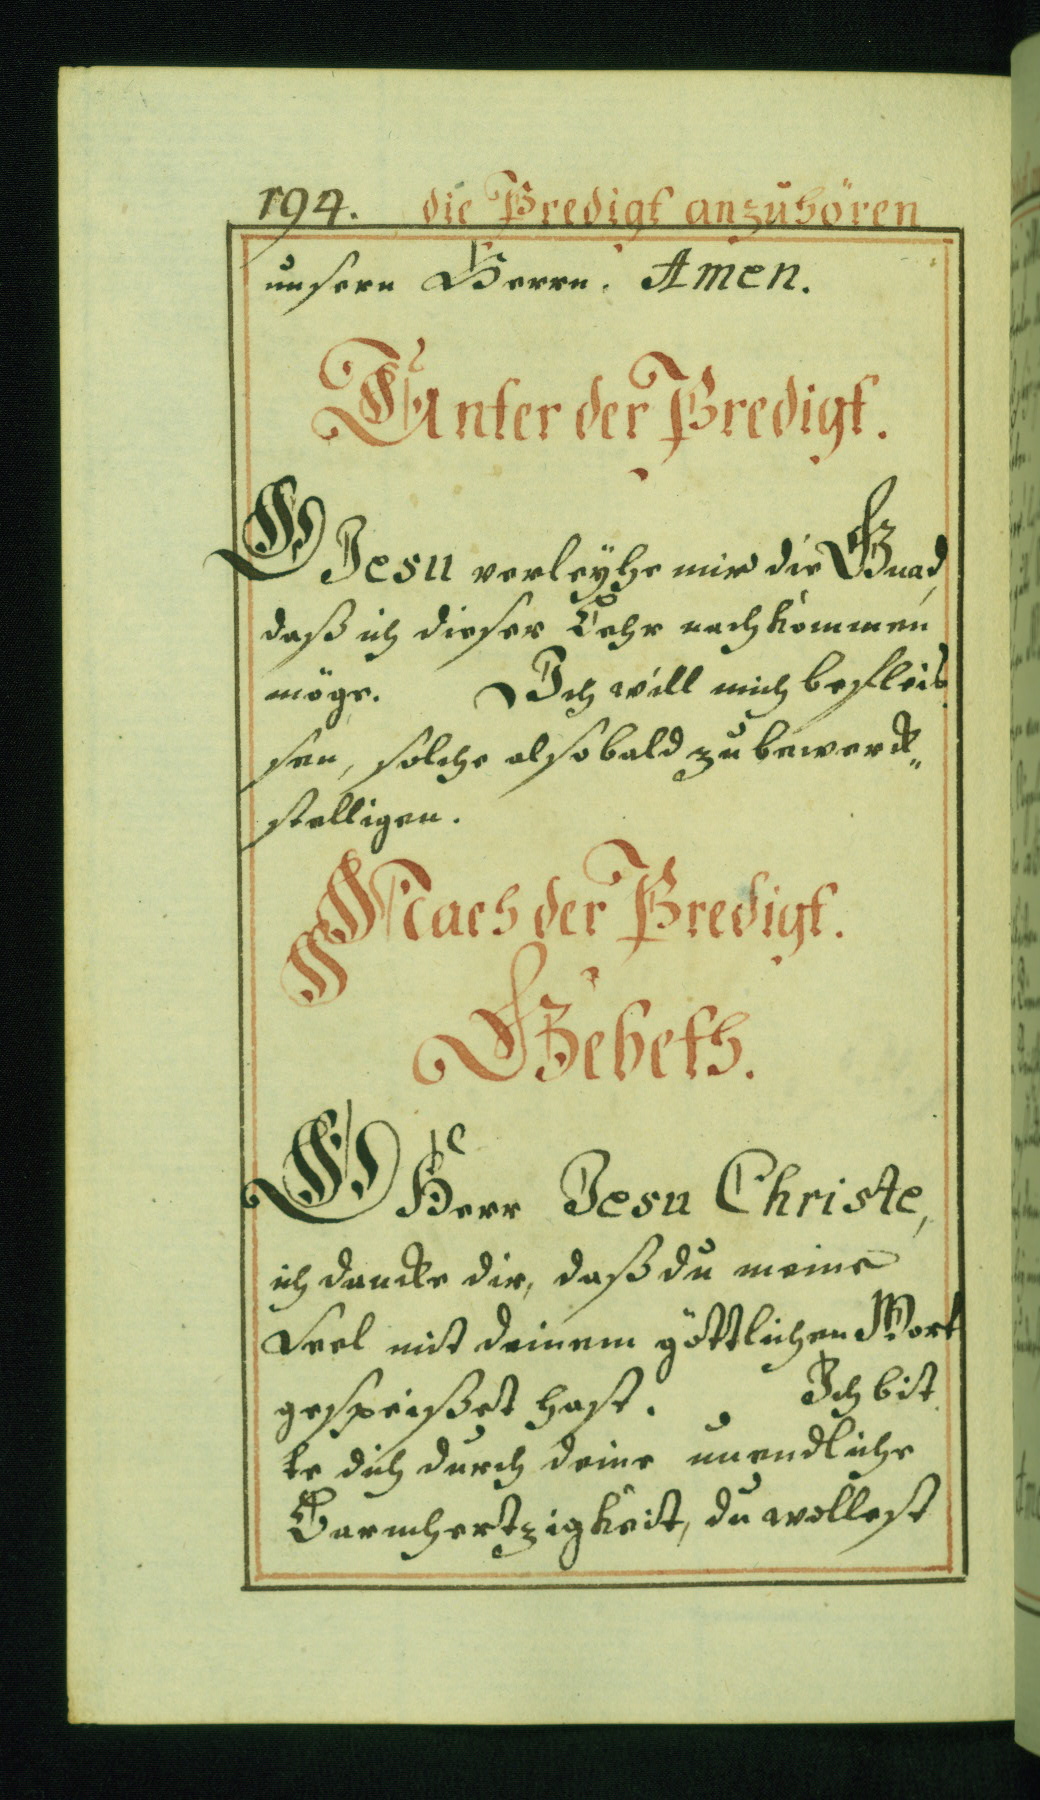 194. die Predigt anzuhören
unsern Herrn. Amen.
Unter der Predigt.
O Jesu verleyhe mir die Gnad,
daß ich dieser Lehr nachkommen
möge. Ich will mich befleis
sen, solche alsobald zu bewerck„
stelligen.
Nach der Predigt.
Gebeth.
O Herr Jesu Christe,
ich dancke dir, daß du meine
Seel mit deinem göttlichen Wort
gespeißet hast. Ich bit
te dich durch deine unendliche
Barmhertzigkeit, du wollest